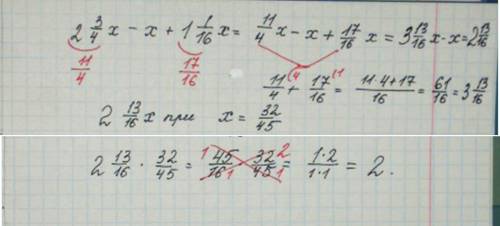 2 3/4 x - x + 1 1/16 x = 11/4 x - x + 17/16 x = 3 13/16 x - x = 2 13/16
11/4 17/16
11/4 (4 + 17/16 (1 = 11·4+17/16 = 61/16 = 3 13/16
2 13/16 x при x = 32/45
2 13/16 · 32/45 = 1 45/16 1 · 32/45 2 1 = 1·2/1·1 = 2.